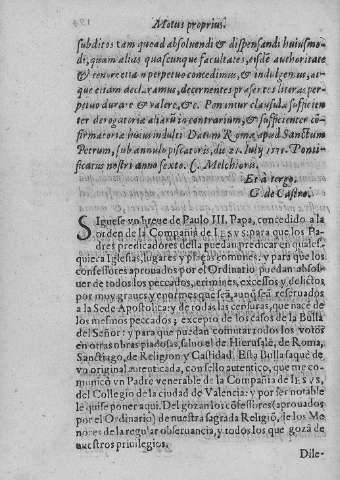 Motus proprius.
subditos tam quead absoluendi & dispensandi huiusmo-
di, quam alias quascunque facultates, eisdē authoritate
& tenore etiā in perpetuo concedimus, & indulgemus, at-
que etiam declaramus, decernentes præsentes literas per-
petuo durare & valere, &c. Ponuntur clausulæ sufficien
ter derogatoriæ aliarū in contrarium, & sufficienter cō-
firmatoriæ huius indulti Datum Romæ apud Sanctum
Petrum, sub annulo piscatoris, die 21. Iuly 1571. Ponti-
ficatus nostri anno sexto. C. Melchioris.
Et à tergo.
G. de Castro.
Siguese vn breue de Paulo III. Papa, concedido a la
orden de la Compañia de IESVS: para que los Pa-
dres predicadores della puedan predicar en quales-
quiera Iglesias, lugares y plaças comunes. y para que los
confessores aprouados por el Ordinario puedan absol-
uer de todos los peccados, crimines, excessos y delictos
por muy graues y enormes que seā, aunq̄ seā reseruados
a la Sede Apostolica: y de todas las censuras, que nacē de
los mesmos peccados; excepto de los casos de la Bulla
del Señor: y para que puedan comutar todos los votos
en otras obras piadosas, saluo el de Hierusalē, de Roma,
Sanctiago, de Religion y Castidad. Esta Bulla saquè de
vn original autenticada, con sello autentico, que me co-
municò vn Padre venerable de la Compañia de IESVS,
del Collegio de la ciudad de Valencia: y por ser notable
le quise poner aqui. Del gozan los cōfessores (aprouados
por el Ordinario) de nuestra sagrada Religiō, de los Me
nores de la regular obseruancia, y todos los que gozā de
nuestros priuilegios.
Dile-